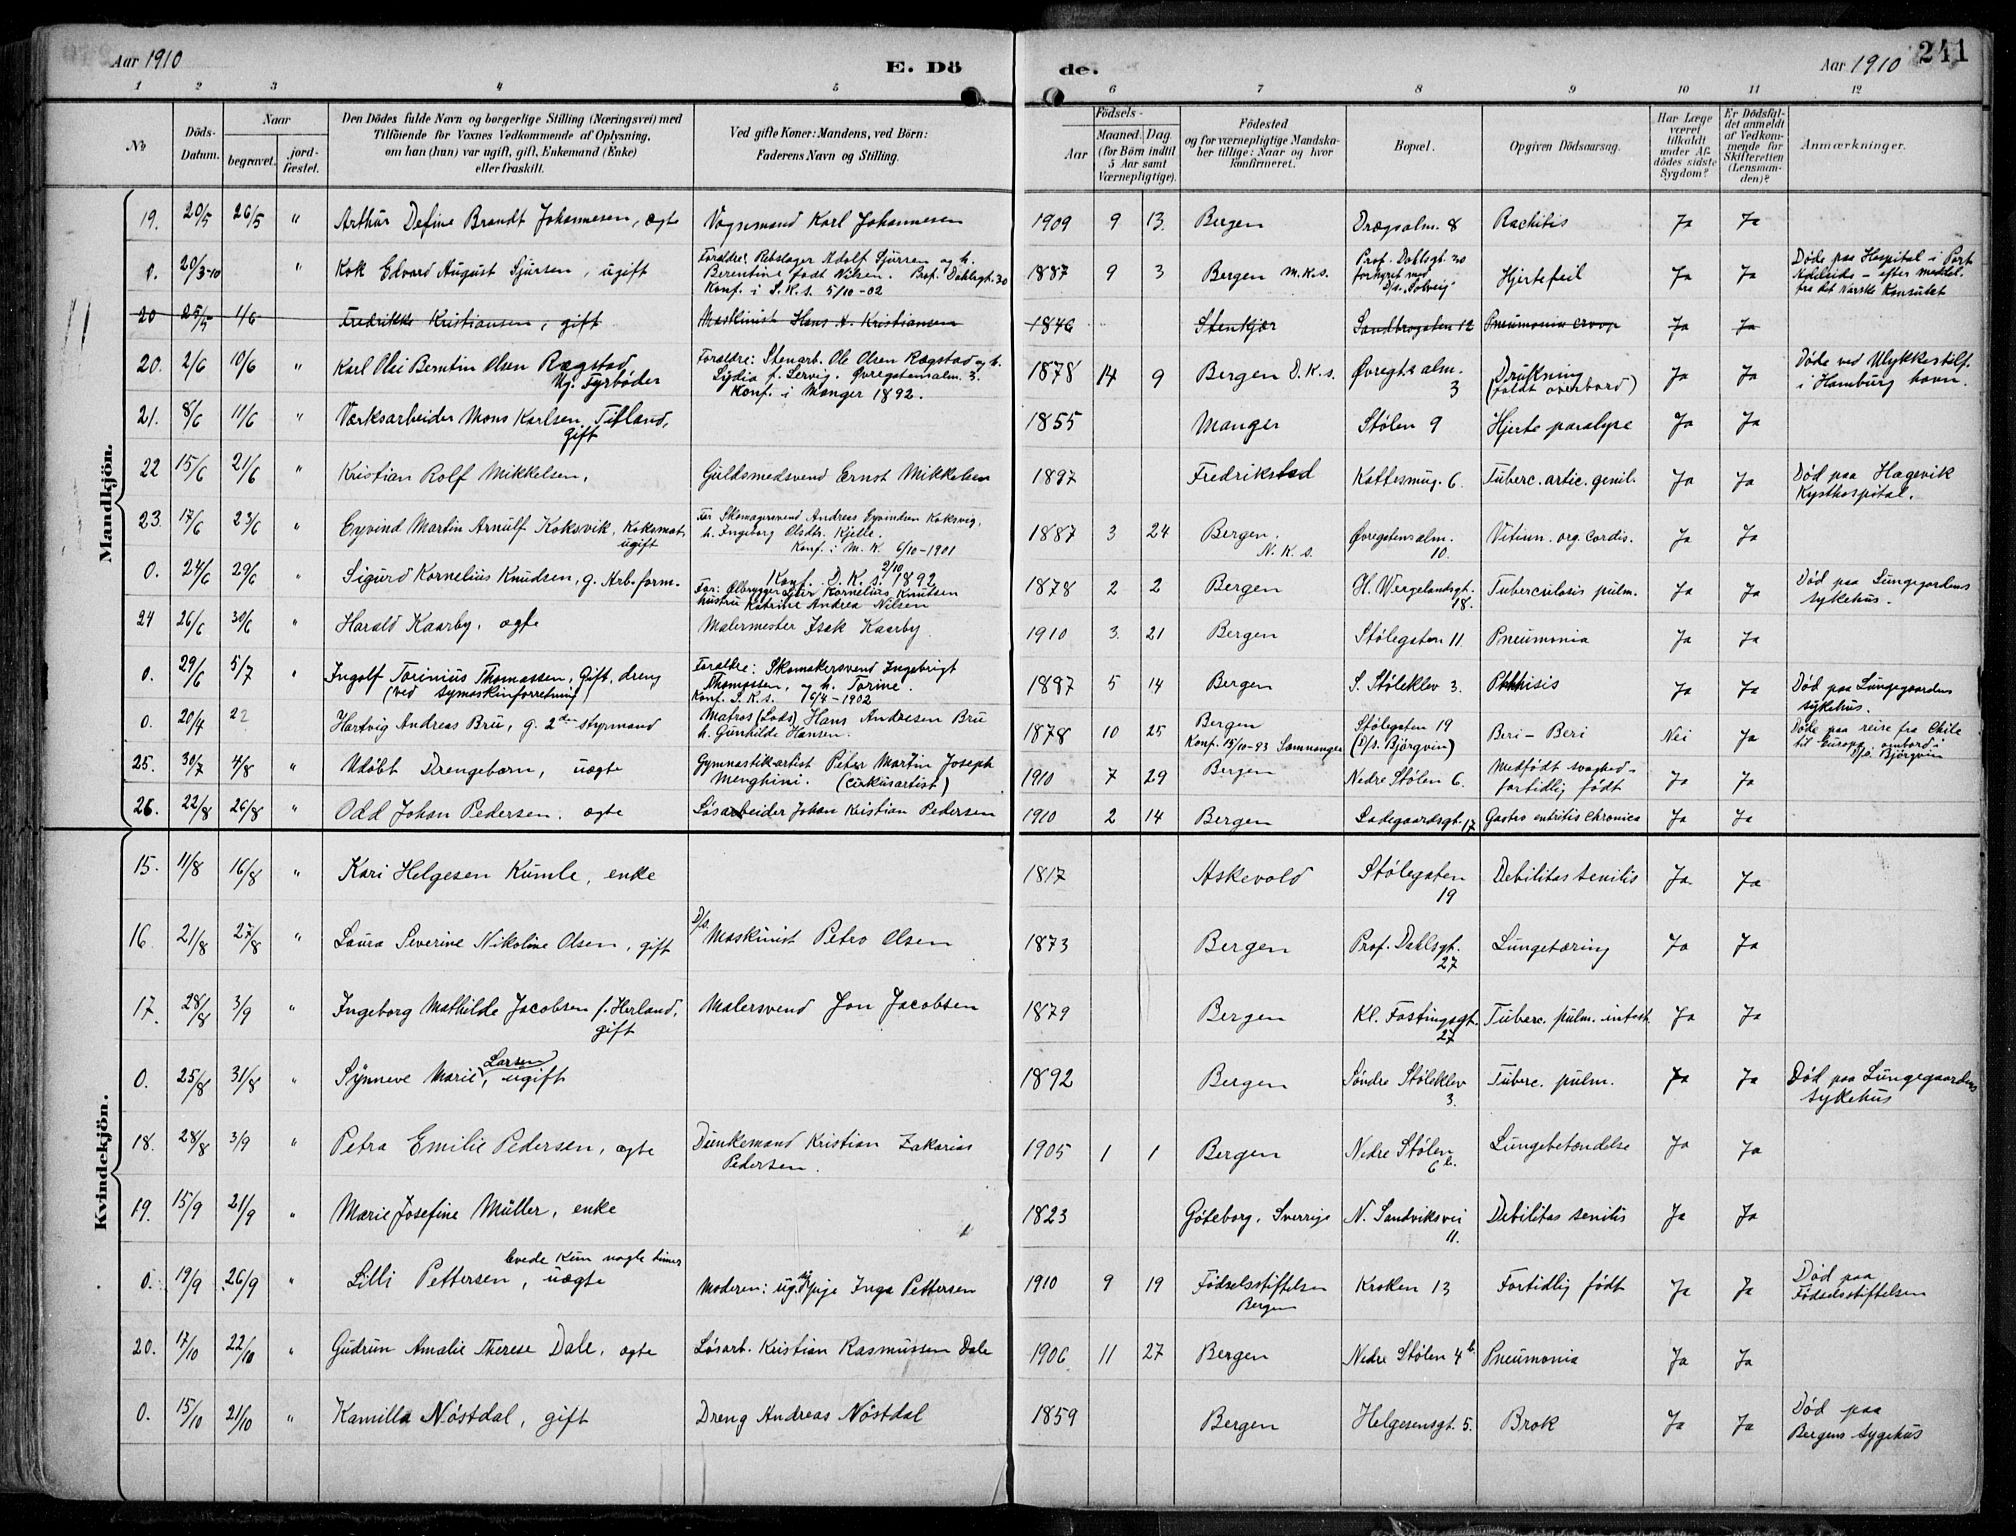 Aar 1910
E. Dö
de.
Aar 1910
241
1 2 3 4 5 6 7 8 9 10 11 12
No
Döds-Datum.
Naar
begravet.
jord-fæstet.
Den Dödes fulde Navn og borgerlige Stilling (Næringsvei) med
Tilföiende for Voxnes Vedkommende af Oplysning,
om han (hun) var ugift, gift, Enkemand (Enke)
eller fraskilt.
Ved gifte Koner: Mandens, ved Börn:
Faderens Navn og Stilling.
Födsels-
Aar
Maaned. Dag.
(for Börn indtil
5 Aar samt
Værnepligtige).
Födested
og for værnepligtige Mandska-
ber tillige: Naar og hvor
konfirmeret.
Bopæl.
Opgiven Dödsaarsag.
Har Læge
været
tilkaldt
under Af-
dödes sidste
Sygdom?
Er Dödsfal-
det anmeldt
af Vedkom-
mende for
Skifteretten
(Lensman-
den)?
Anmærkninger.
Mandkjön.
19. 20/5 26/5 " Arthur Define Brandt Johannesen, ægte Vognmand Karl Johannesen 1909 9 13. Bergen Drægsalm. 8 Rachitis Ja Ja
0. 20/3-10 " Kok Edvard August Sjursen, ugift Forældre: Rebslager Adolf Sjursen og h.
Berentine født Nilsen. Prof. Dahlsgt. 30
Konf. i S.K.s. 5/10-02 1887 9 3 Bergen M.K.s. Prof. Dahlsgt. 30
forhyret med
D/s. "Solveig" Hjertefeil Ja Ja Døde paa Hospital i Port
Adelaide - efter meddel.
fra det Norske Konsulat
20 25/5 1/6 Fredrikke Kristiansen, gift Maskinist Hans A. Kristiansen 1846 Stenkjær Sandbrogaten 12 Pneumonia croup Ja Ja
20. 2/6 10/6 " Karl Olai Berntin Olsen Rægstad
Ug. Fyrbøder Forældre: Stenarb. Ole Olsen Rægstad og h.
Lydia f. Servig. Øvregatensalm. 3.
Konf. i Manger 1892. 1878 14 9 Bergen D.K.s. Øvregt.s alm.
3 Drukning
(faldt overbord) Ja Ja Døde ved Ulykkestilf.
i Hamburg havn.
21. 8/6 11/6 " Værksarbeider Mons Karlsen Titland,
gift 1855 Manger Stølen 9 Hjerte paralyse Ja Ja
22 15/6 21/6 " Kristian Rolf Mikkelsen, Guldsmedsvend Ernst Mikkelsen 1897 Fredrikstad Kattesmug. 6. Tuberc. artic. genil. Ja Ja Død paa Hagevik
Kysthospital.
23. 17/6 23/6 " Eyvind Martin Arnulf Koksvik, Koksmat,
ugift For Skomagersvend Andreas Eyvindsen Koksvig,
h. Ingeborg Olsdtr. Kjelle.
Konf. i M.K. 6/10-1901 1887 3 24 Bergen.
N.K.s. Øvregatensalm.
10. Vitium. org. cordis. Ja Ja
0. 24/6 29/6 " Sigurd Kornelius Knudsen, g. Arb.form. Konf. D.K.s. 2/10 1892
For: Ølbryggerarbeider Kornelius Knutsen
hustru Katrine Andrea Nilsen 1878 2 2 Bergen H. Wergelandsgt.
18. Tuberculosis pulm. Ja Ja Død paa Lungegaardens
sykehus.
24 26/6 30/6 " Harald Kaarby, ægte Malermester Isak Kaarby. 1910 3. 21 Bergen Stølegaten 11 Pneumonia Ja Ja
0. 29/6 5/7 " Ingolf Torinius Thomassen, Gift, dreng
(ved symaskinforretning) Forældre: Skomakersvend Ingebrigt
Thomassen, og h. Torine.
Konf. S.K.s. 6/4-1902 1887 5 14 Bergen S. Støleklev 3. Phthisis Ja Ja Død paa Lungegaardens
sykehus.
0. 20/4 22 Hartvig Andreas Bru, g. 2den styrmand Matros (Lods) Hans Andresen Bru
h. Gunhilde Hansen. 1878 10 25 Bergen
Konf. 15/10-93 Samnanger Stølegaten 19
(D/s. Björgvin) Beri-Beri Nei Ja Døde paa reise fra Chile
til Europa ombord i
D/s. Björgvin
25. 30/7 4/8 " Udøbt Drengebarn, uægte Gymnastik-artist Peter Martin Joseph
Menghini. (cirkusartist) 1910 7 29 Bergen Nedre Stølen 6. Medfødt svaghed-
fortidlig født Ja Ja
26. 22/8 26/8 " Odd Johan Pedersen. ægte Løsarbeider Johan Kristian Pedersen 1910 2 14 Bergen Ladegaardsgt. 17 Gastro entritis chronica Ja Ja
Kvindekjön.
15. 11/8 16/8 " Kari Helgesen Kumle, enke 1817 Askevold Stølegaten
19 Debilitas senilis Ja Ja
16. 21/8 27/8 " Laura Severine Nikoline Olsen, gift D/s. Maskinist Petro Olsen 1873 Bergen Prof. Dahlsgt.
27 Lungetæring Ja Ja
17. 28/8 3/9 " Ingeborg Mathilde Jacobsen f. Herland,
gift Malersvend Jon Jacobsen 1879 Bergen Kl. Fostingsgt.
27 Tuberc. pulm. intest. Ja Ja
0. 25/8 31/8 " Synneve Marie Larsen, ugift 1892 Bergen Søndre Støleklev
3. Tuberc. pulm. Ja Ja Død paa Lungegaardens
sykehus
18. 28/8 3/9 " Petra Emilie Pedersen, ægte Dunkemand Kristian Zakarias
Pedersen. 1905 1 1 Bergen Nedre Stølen
6 b. Lungebetændelse Ja Ja
19. 15/9 21/9 " Marie Josefine Müller, enke 1823 Göteborg, Sverrige N. Sandviksvei
11. Debilitas senilis Ja Ja
0. 19/9 26/9 " Lilli Pettersen, uægte levede kun nogle timer Moderen: ug. Inga Pettersen 1910 9 19 Fødselsstiftelsen
Bergen Kroken 13 Fortidlig født Ja Ja Død paa
Fødselsstiftelsen
20. 17/10 22/10 " Gudrun Amalie Therese Dale, ægte Løsarb. Kristian Rasmussen Dale 1906 11 27 Bergen Nedre Stølen 4 b. Pneumonia Ja Ja
0. 15/10 21/10 " Kamilla Nöstdal, gift Dreng Andreas Nöstdal 1859 Bergen Helgesensgt. 5. Brok Ja Ja Død paa
Bergens sygehus